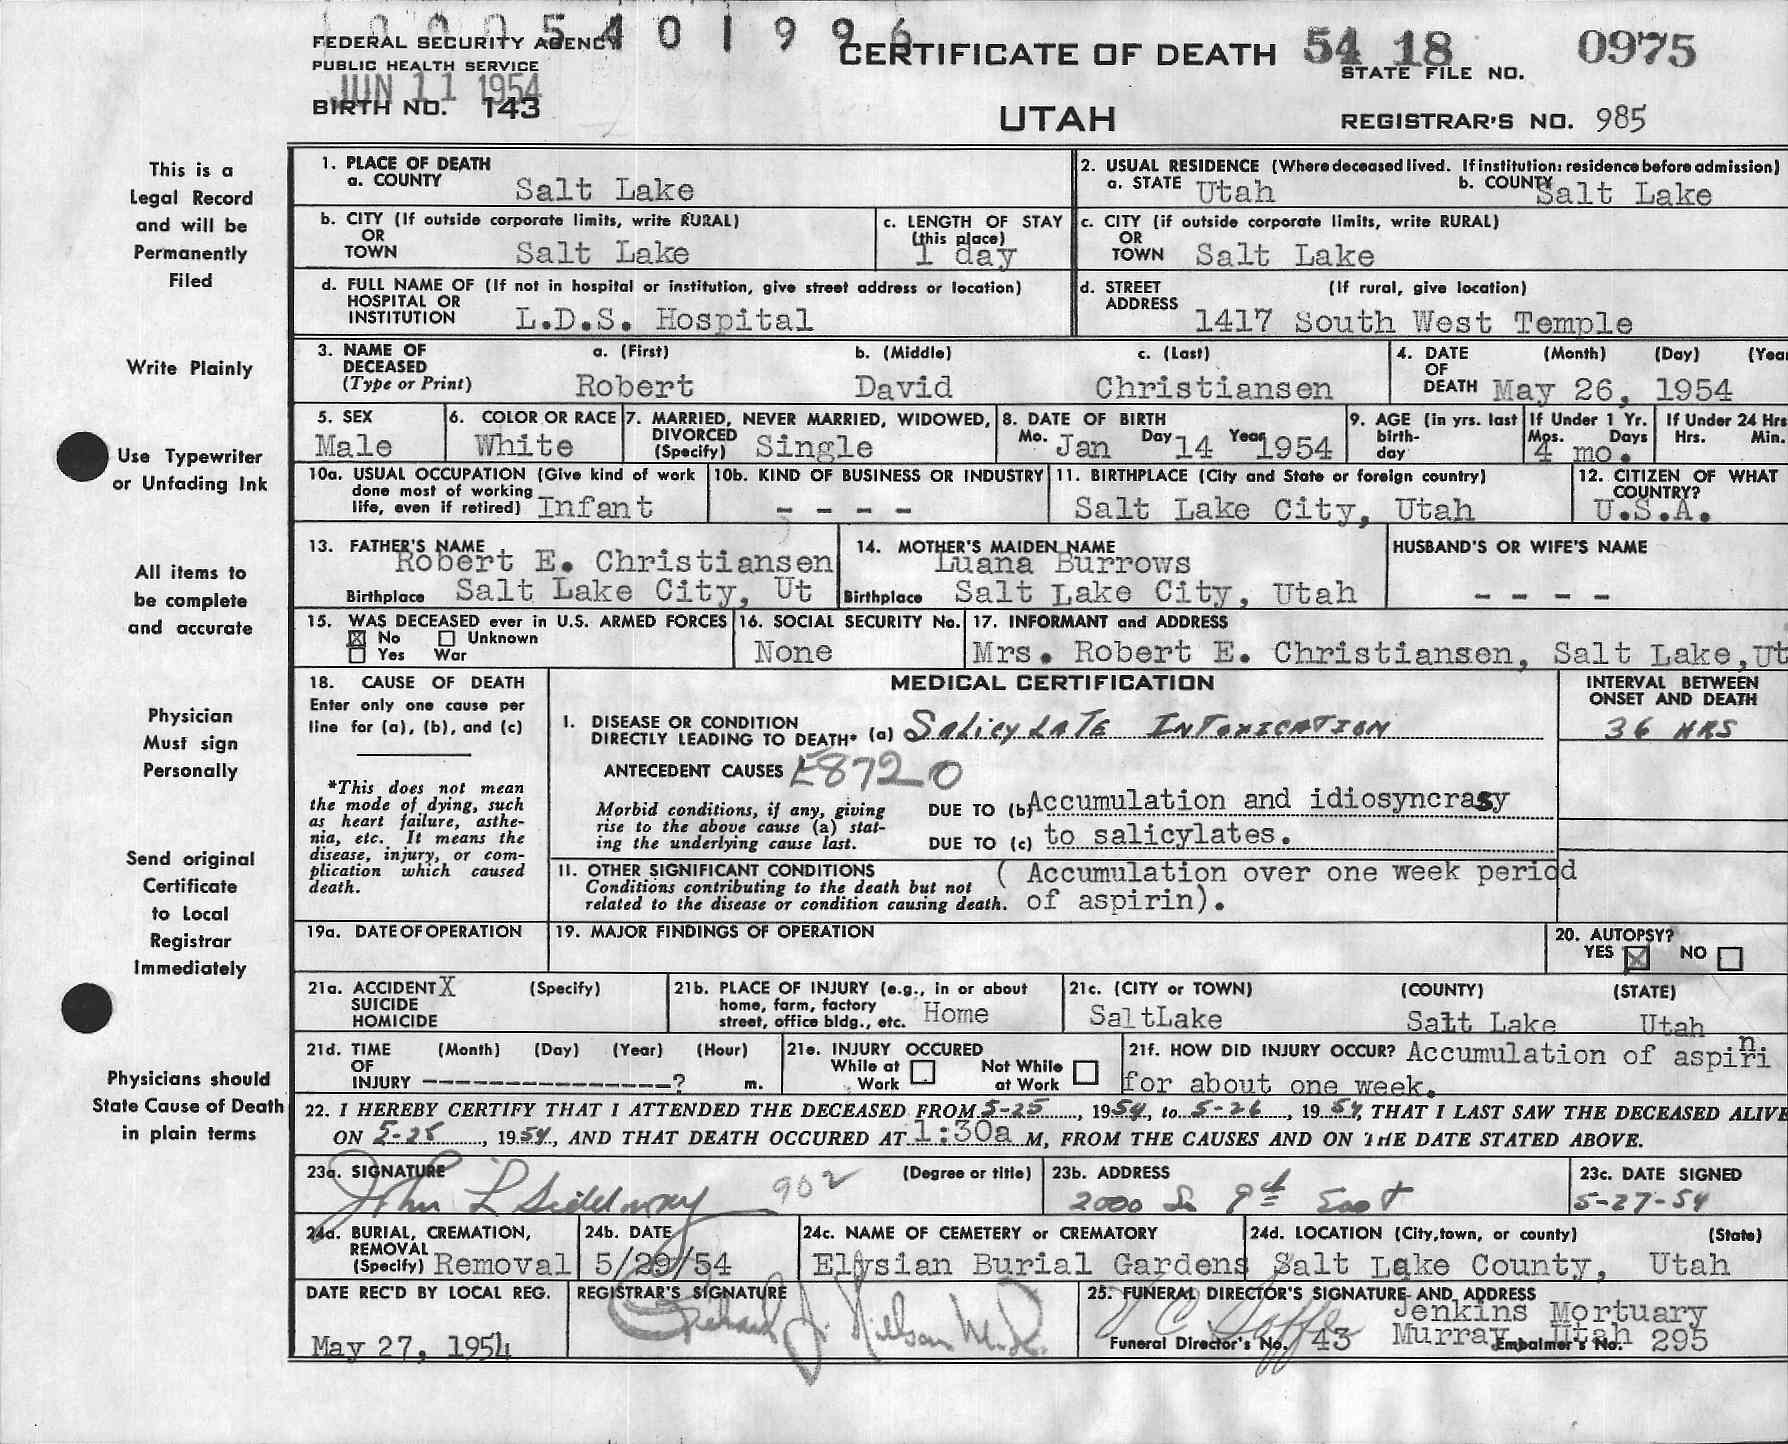 10005401996
FEDERAL SECURITY AGENCY
PUBLIC HEALTH SERVICE
JUN 11 1954
BIRTH NO. 143
CERTIFICATE OF DEATH
UTAH
54 18 0975
STATE FILE NO.
REGISTRAR'S NO. 985
This is a
Legal Record
and will be
Permanently
Filed
Write Plainly
Use Typewriter
or Unfading Ink
All items to
be complete
and accurate
Physician
Must sign
Personally
Send original
Certificate
to Local
Registrar
Immediately
Physicians should
State Cause of Death
in plain terms
1. PLACE OF DEATH
a. COUNTY Salt Lake
2. USUAL RESIDENCE (Where deceased lived. If institution: residence before admission)
a. STATE Utah b. COUNTY Salt Lake
b. CITY (If outside corporate limits, write RURAL)
OR
TOWN Salt Lake
c. LENGTH OF STAY
(this place)
1 day
c. CITY (if outside corporate limits, write RURAL)
OR
TOWN Salt Lake
d. FULL NAME OF (If not in hospital or institution, give street address or location)
HOSPITAL OR
INSTITUTION L.D.S. Hospital
d. STREET (If rural, give location)
ADDRESS 1417 South West Temple
3. NAME OF a. (First) b. (Middle) c. (Last)
DECEASED
(Type or Print) Robert David Christiansen
4. DATE (Month) (Day) (Year
OF
DEATH May 26, 1954
5. SEX
Male
6. COLOR OR RACE
White
7. MARRIED, NEVER MARRIED, WIDOWED,
DIVORCED
(Specify) Single
8. DATE OF BIRTH
Mo. Jan Day 14 Year 1954
9. AGE (in yrs. last
birth-
day
If Under 1 Yr.
Mos. Days
4 mo.
If Under 24 Hrs
Hrs. Min.
10a. USUAL OCCUPATION (Give kind of work
done most of working
life, even if retired) Infant
10b. KIND OF BUSINESS OR INDUSTRY
- - - -
11. BIRTHPLACE (City and State or foreign country)
Salt Lake City, Utah
12. CITIZEN OF WHAT
COUNTRY?
U.S.A.
13. FATHER'S NAME
Robert E. Christiansen
Birthplace Salt Lake City, Ut
14. MOTHER'S MAIDEN NAME
Luana Burrows
Birthplace Salt Lake City, Utah
HUSBAND'S OR WIFE'S NAME
- - - -
15. WAS DECEASED ever in U.S. ARMED FORCES
☒ No ☐ Unknown
☐ Yes War
16. SOCIAL SECURITY No.
None
17. INFORMANT and ADDRESS
Mrs. Robert E. Christiansen, Salt Lake, Ut
18. CAUSE OF DEATH
Enter only one cause per
line for (a), (b), and (c)
*This does not mean
the mode of dying, such
as heart failure, asthe-
nia, etc. It means the
disease, injury, or com-
plication which caused
death.
MEDICAL CERTIFICATION
INTERVAL BETWEEN
ONSET AND DEATH
I. DISEASE OR CONDITION
DIRECTLY LEADING TO DEATH* (a) Salicylate Intoxication
36 HRS
ANTECEDENT CAUSES E872 0
Morbid conditions, if any, giving
rise to the above cause (a) stat-
ing the underlying cause last.
DUE TO (b) Accumulation and idiosyncrasy
DUE TO (c) to salicylates.
II. OTHER SIGNIFICANT CONDITIONS
Conditions contributing to the death but not
related to the disease or condition causing death.
( Accumulation over one week period
of aspirin).
19a. DATE OF OPERATION
19. MAJOR FINDINGS OF OPERATION
20. AUTOPSY?
YES ☒ NO ☐
21a. ACCIDENT X (Specify)
SUICIDE
HOMICIDE
21b. PLACE OF INJURY (e.g., in or about
home, farm, factory
street, office bldg., etc. Home
21c. (CITY or TOWN) (COUNTY) (STATE)
SaltLake Salt Lake Utah
21d. TIME (Month) (Day) (Year) (Hour)
OF
INJURY ----------------? m.
21e. INJURY OCCURED
While at Work ☐ Not While at Work ☐
21f. HOW DID INJURY OCCUR? Accumulation of aspirin
for about one week.
22. I HEREBY CERTIFY THAT I ATTENDED THE DECEASED FROM 5-25, 1954, to 5-26, 1954, THAT I LAST SAW THE DECEASED ALIVE
ON 5-25, 1954, AND THAT DEATH OCCURED AT 1:30a M, FROM THE CAUSES AND ON THE DATE STATED ABOVE.
23a. SIGNATURE (Degree or title)
John L Siddoway 902
23b. ADDRESS
2000 So 9th East
23c. DATE SIGNED
5-27-54
24a. BURIAL, CREMATION,
REMOVAL
(Specify) Removal
24b. DATE
5/29/54
24c. NAME OF CEMETERY or CREMATORY
Elysian Burial Gardens
24d. LOCATION (City, town, or county) (State)
Salt Lake County, Utah
DATE REC'D BY LOCAL REG.
May 27, 1954
REGISTRAR'S SIGNATURE
25. FUNERAL DIRECTOR'S SIGNATURE AND ADDRESS
Jenkins Mortuary
Murray, Utah
Funeral Director's No. 43 Embalmer's No. 295